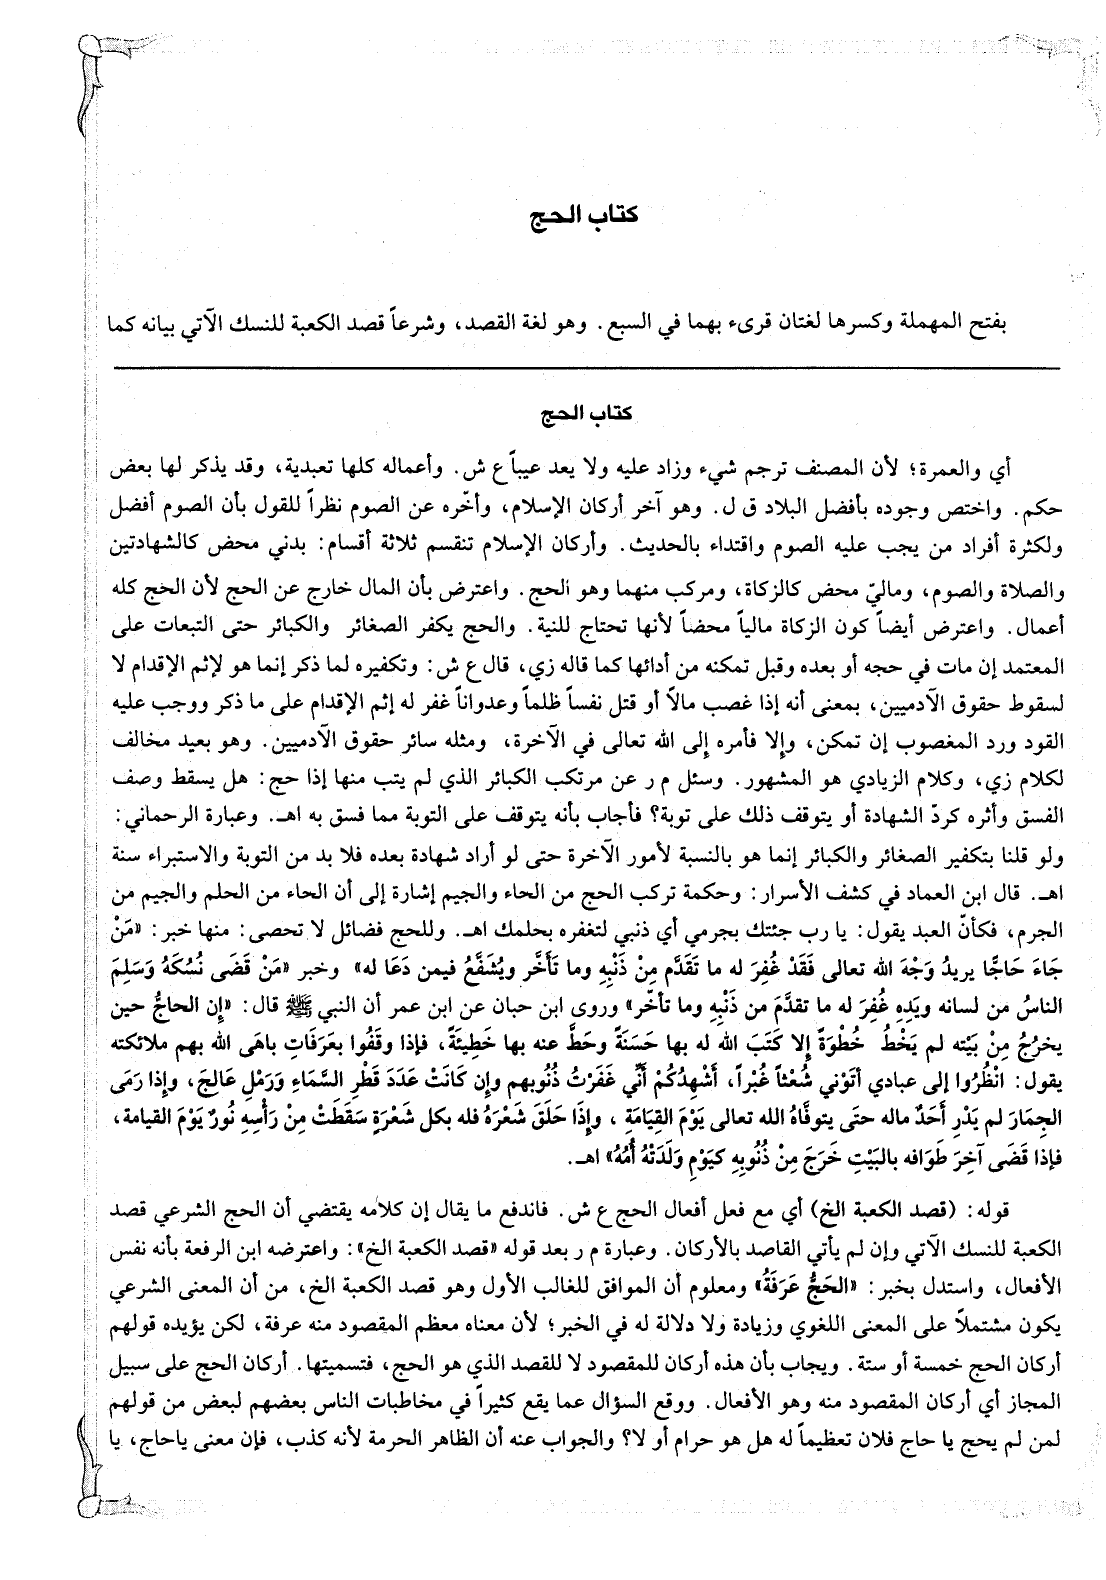 كتاب الحج
بفتح المهملة وكسرها لغتان قرىء بهما في السبع. وهو لغة القصد، وشرعاً قصد الكعبة للنسك الآتي بيانه كما
كتاب الحج
أي والعمرة؛ لأن المصنف ترجم شيء وزاد عليه ولا يعد عيباً ع ش. وأعماله كلها تعبدية، وقد يذكر لها بعض
حكم. واختص وجوده بأفضل البلاد ق ل. وهو آخر أركان الإسلام، وأخّره عن الصوم نظراً للقول بأن الصوم أفضل
ولكثرة أفراد من يجب عليه الصوم واقتداء بالحديث. وأركان الإسلام تنقسم ثلاثة أقسام: بدني محض كالشهادتين
والصلاة والصوم، وماليّ محض كالزكاة، ومركب منهما وهو الحج. واعترض بأن المال خارج عن الحج لأن الحج كله
أعمال. واعترض أيضاً كون الزكاة مالياً محضاً لأنها تحتاج للنية. والحج يكفر الصغائر والكبائر حتى التبعات على
المعتمد إن مات في حجه أو بعده وقبل تمكنه من أدائها كما قاله زي، قال ع ش: وتكفيره لما ذكر إنما هو لإثم الإقدام لا
لسقوط حقوق الآدميين، بمعنى أنه إذا غصب مالاً أو قتل نفساً ظلماً وعدواناً غفر له إثم الإقدام على ما ذكر ووجب عليه
القود ورد المغصوب إن تمكن، وإلا فأمره إلى الله تعالى في الآخرة، ومثله سائر حقوق الآدميين. وهو بعيد مخالف
لكلام زي، وكلام الزيادي هو المشهور. وسئل م ر عن مرتكب الكبائر الذي لم يتب منها إذا حج: هل يسقط وصف
الفسق وأثره كردّ الشهادة أو يتوقف ذلك على توبة؟ فأجاب بأنه يتوقف على التوبة مما فسق به اهـ. وعبارة الرحماني:
ولو قلنا بتكفير الصغائر والكبائر إنما هو بالنسبة لأمور الآخرة حتى لو أراد شهادة بعده فلا بد من التوبة والاستبراء سنة
اهـ. قال ابن العماد في كشف الأسرار: وحكمة تركب الحج من الحاء والجيم إشارة إلى أن الحاء من الحلم والجيم من
الجرم، فكأنّ العبد يقول: يا رب جئتك بجرمي أي ذنبي لتغفره بحلمك اهـ. وللحج فضائل لا تحصى: منها خبر: «مَنْ
جَاءَ حَاجًّا يريدُ وَجْهَ الله تعالى فَقَدْ غُفِرَ له ما تَقَدَّم مِنْ ذَنْبِهِ وما تَأَخَّر ويُشَفَّعُ فيمن دَعَا له» وخبر «مَنْ قَضَى نُسُكَهُ وَسَلِمَ
الناسُ من لسانه ويَدِهِ غُفِرَ له ما تقدَّمَ من ذَنْبِهِ وما تأخّر» وروى ابن حبان عن ابن عمر أن النبي ﷺ قال: «إن الحاجَّ حين
يخرُجُ مِنْ بَيْتِه لم يَخْطُ خُطْوَةً إلا كَتَبَ الله له بها حَسَنَةً وحَطَّ عنه بها خَطِيئَةً، فإذا وقَفُوا بعَرَفَاتِ باهَى الله بهم ملائكته
يقول: انْظُرُوا إلى عبادي أتَوْني شُعْثاً غُبْراً، أُشْهِدُكُمْ أنَّي غَفَرْتُ ذُنُوبهم وإن كَانَتْ عَدَدَ قَطْرِ السَّمَاءِ وَرَمْلِ عَالِجَ، وإذا رَمَى
الجِمَارَ لم يَدْرِ أَحَدٌ ماله حتَى يتوفَّاهُ الله تعالى يَوْمَ القِيَامَةِ، وإذَا حَلَقَ شَعْرَهُ فله بكل شَعْرَةٍ سَقَطَتْ مِنْ رَأْسِهِ نُورٌ يَوْمَ القيامة،
فإذا قَضَى آخِرَ طَوَافه بالبَيْتِ خَرَجَ مِنْ ذُنُوبِهِ كيَوْمِ وَلَدَتْهُ أُمُّهُ» اهـ.
قوله: (قصد الكعبة الخ) أي مع فعل أفعال الحج ع ش. فاندفع ما يقال إن كلامه يقتضي أن الحج الشرعي قصد
الكعبة للنسك الآتي وإن لم يأتي القاصد بالأركان. وعبارة م ر بعد قوله «قصد الكعبة الخ»: واعترضه ابن الرفعة بأنه نفس
الأفعال، واستدل بخبر: «الحَجُّ عَرَفَةُ» ومعلوم أن الموافق للغالب الأول وهو قصد الكعبة الخ، من أن المعنى الشرعي
يكون مشتملاً على المعنى اللغوي وزيادة ولا دلالة له في الخبر؛ لأن معناه معظم المقصود منه عرفة، لكن يؤيده قولهم
أركان الحج خمسة أو ستة. ويجاب بأن هذه أركان للمقصود لا للقصد الذي هو الحج، فتسميتها. أركان الحج على سبيل
المجاز أي أركان المقصود منه وهو الأفعال. ووقع السؤال عما يقع كثيراً في مخاطبات الناس بعضهم لبعض من قولهم
لمن لم يحج يا حاج فلان تعظيماً له هل هو حرام أو لا؟ والجواب عنه أن الظاهر الحرمة لأنه كذب، فإن معنى ياحاج، يا